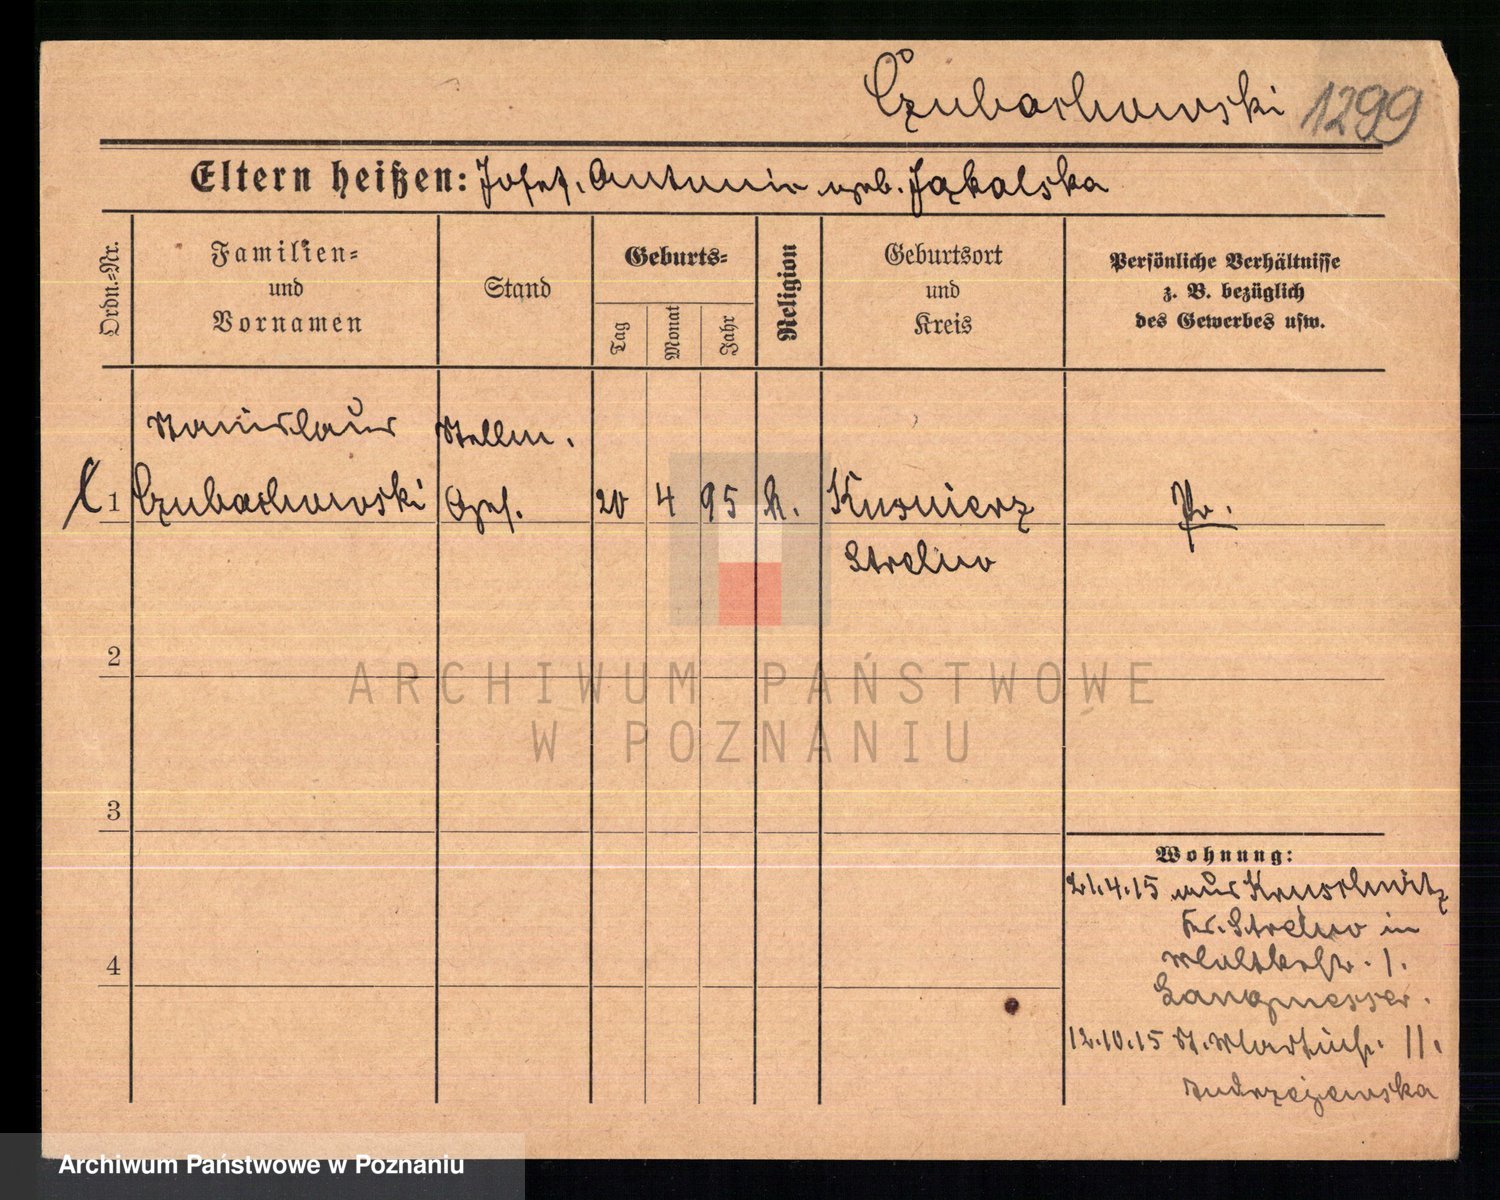 Czubachowski 1299
Eltern heißen: Josef, Antonie geb. Jąkalska
Ordn.-Nr.
Familien-
und
Vornamen
Stand
Geburts-
Tag
Monat
Jahr
Religion
Geburtsort
und
Kreis
Persönliche Verhältnisse
z. B. bezüglich
des Gewerbes usw.
Stanislaus Stellm.
1 Czubachowski Ges. 20 4 95 k. Kusnierz Pr.
Strelno
2
ARCHIWUM PAŃSTWOWE
W POZNANIU
3
Wohnung:
21.4.15 aus Kruschwitz
Kr. Strelno in
Moltkestr. 1.
Langmesser.
4
12.10.15 St. Martinstr. 11.
Andrzejewska
Archiwum Państwowe w Poznaniu